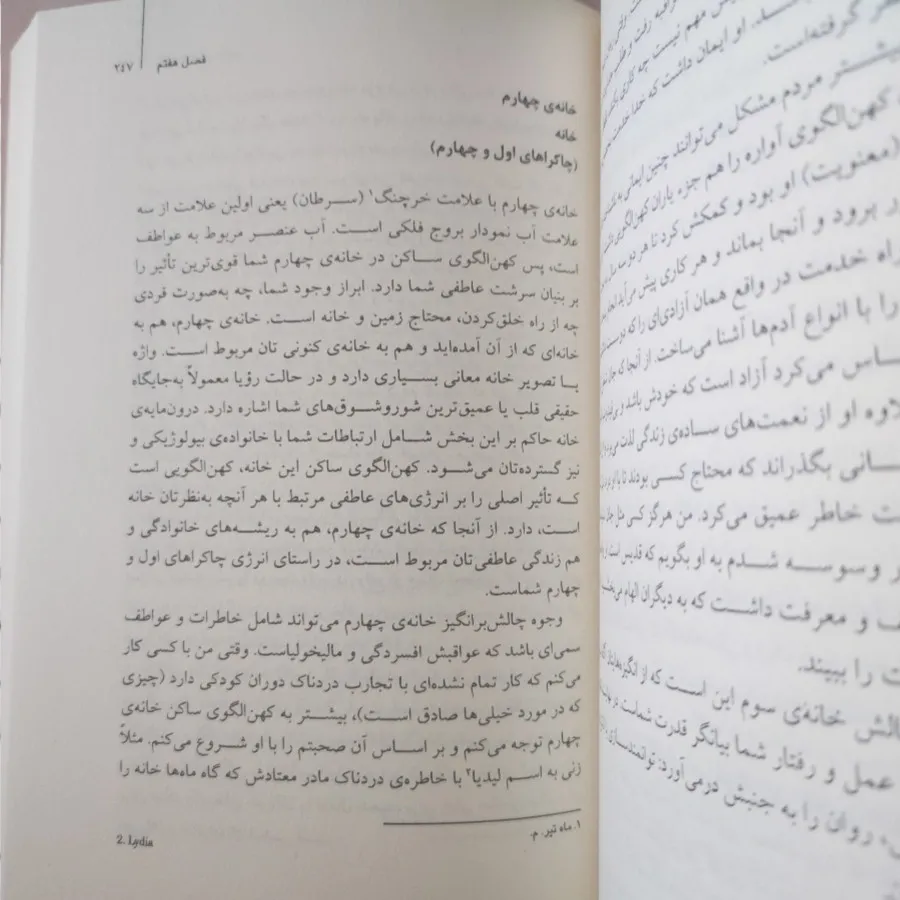 فصل هفتم ۲۴۷
خانه‌ی چهارم
خانه
(چاکراهای اول و چهارم)
خانه‌ی چهارم با علامت خرچنگ۱ (سرطان) یعنی اولین علامت از سه
علامت آب نمودار بروج فلکی است. آب عنصر مربوط به عواطف
است، پس کهن‌الگوی ساکن در خانه‌ی چهارم شما قوی‌ترین تأثیر را
بر بنیان سرشت عاطفی شما دارد. ابراز وجود شما، چه به‌صورت فردی
چه از راه خلق‌کردن، محتاج زمین و خانه است. خانه‌ی چهارم، هم به
خانه‌ای که از آن آمده‌اید و هم به خانه‌ی کنونی تان مربوط است. واژه
یا تصویر خانه معانی بسیاری دارد و در حالت رؤیا معمولاً به‌جایگاه
حقیقی قلب یا عمیق‌ترین شوروشوق‌های شما اشاره دارد. درون‌مایه‌ی
خانه حاکم بر این بخش شامل ارتباطات شما با خانواده‌ی بیولوژیکی و
نیز گسترده‌تان می‌شود. کهن‌الگوی ساکن این خانه، کهن‌الگویی است
که تأثیر اصلی را بر انرژی‌های عاطفی مرتبط با هر آنچه به‌نظرتان خانه
است، دارد. از آنجا که خانه‌ی چهارم، هم به ریشه‌های خانوادگی و
هم زندگی عاطفی‌تان مربوط است، در راستای انرژی چاکراهای اول و
چهارم شماست.
وجوه چالش‌برانگیز خانه‌ی چهارم می‌تواند شامل خاطرات و عواطف
سمی‌ای باشد که عواقبش افسردگی و مالیخولیاست. وقتی من با کسی کار
می‌کنم که کار تمام نشده‌ای با تجارب دردناک دوران کودکی دارد (چیزی
که در مورد خیلی‌ها صادق است)، بیشتر به کهن‌الگوی ساکن خانه‌ی
چهارم توجه می‌کنم و بر اساس آن صحبتم را با او شروع می‌کنم. مثلاً
زنی به اسم لیدیا۲ با خاطره‌ی دردناک مادر معتادش که گاه ماه‌ها خانه را
۱. ماه تیر. م.
2. Lydia
گرفته‌است.
بیشتر مردم مشکل می‌توانند چنین ایمانی
کهن‌الگوی آواره را هم جزء یاران کهن‌الگوی
(معنویت) او بود و کمکش کرد تا هر دو
برود و آنجا بماند و هر کاری پیش می‌آید
راه خدمت در واقع همان آزادی‌ای را که
را با انواع آدم‌ها آشنا می‌ساخت. از آنجا که
می‌کرد آزاد است که خودش باشد و
او از نعمت‌های ساده‌ی زندگی لذت می‌برد
بگذراند که محتاج کسی بودند تا با او
خاطر عمیق می‌کرد. من هرگز کسی مثل
وسوسه شدم به او بگویم که قدیس است
و معرفت داشت که به دیگران الهام
را ببیند.
چالش خانه‌ی سوم این است که از انگیزه‌هایتان
عمل و رفتار شما بیانگر قدرت شماست
روان را به جنبش درمی‌آورد: توانمندسازی